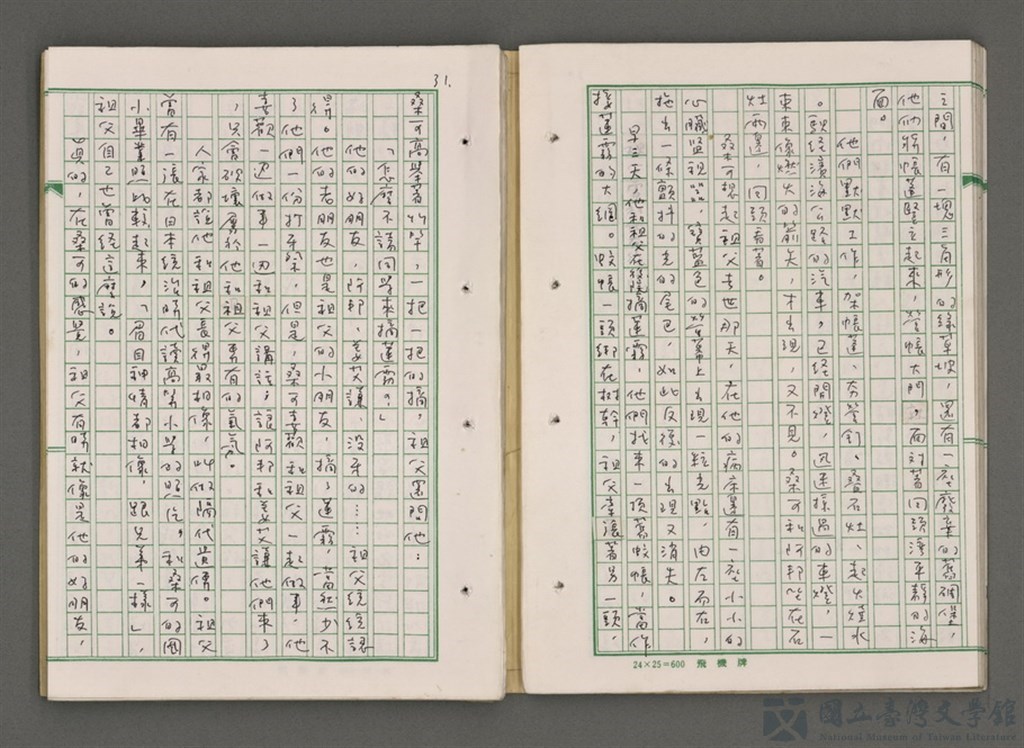 之間，有一塊三角形的綠草坡，還有一座廢棄的舊碉堡，
他們將帳蓬豎立起來，營帳大門，面對著回頭灣平靜的海
面。
他們默默工作，架帳蓬、夯營釘、疊石灶、起火燒水
。縣經濱海公路的汽車，已經開燈，迅速掠過的車燈，一
束束像燃火的箭矢，才出現，又不見。桑可和阿邦坐在石
灶兩邊，回頭看著。
桑可想起祖父去世那天，在他的病床邊有一座小小的
心臟監視器，寶藍色的螢幕上出現一粒光點，由左而右，
拖出一條顫抖的光的尾巴，如此反復的出現又消失。
早三天，他和祖父在後院摘蓮霧，他們找來一頂舊蚊帳，當作
接蓮霧的大網。蚊帳一頭綁在樹幹，祖父牽讓著另一頭，
24×25=600 飛機牌
31.
桑可高舉著竹竿，一把一把的摘，祖父還問他：
「怎麼不請同學來摘蓮霧？」
他的好朋友，阿邦、姜艾讓、沒牙的……祖父統統認
得。他的老朋友也是祖父的小朋友，摘了蓮霧，當然少不
了他們一份打牙祭，但是，桑可喜歡和祖父一起做事，他
喜歡一邊做事一邊和祖父講話，讓阿邦和姜艾讓他們來了
，只會破壞屬於他和祖父專有的氣氛。
人家都說他和祖父長得最相像，此做隔代遺傳。祖父
曾有一張在日本統治時代讀高等小學的照片，和桑可的國
小畢業照比較起來，「眉目神情都相像，跟兄弟一樣」，
祖父自己也曾經這麼說。
真的，在桑可的感覺，祖父有時就像是他的好朋友，
國立臺灣文學館
National Museum of Taiwan Literature